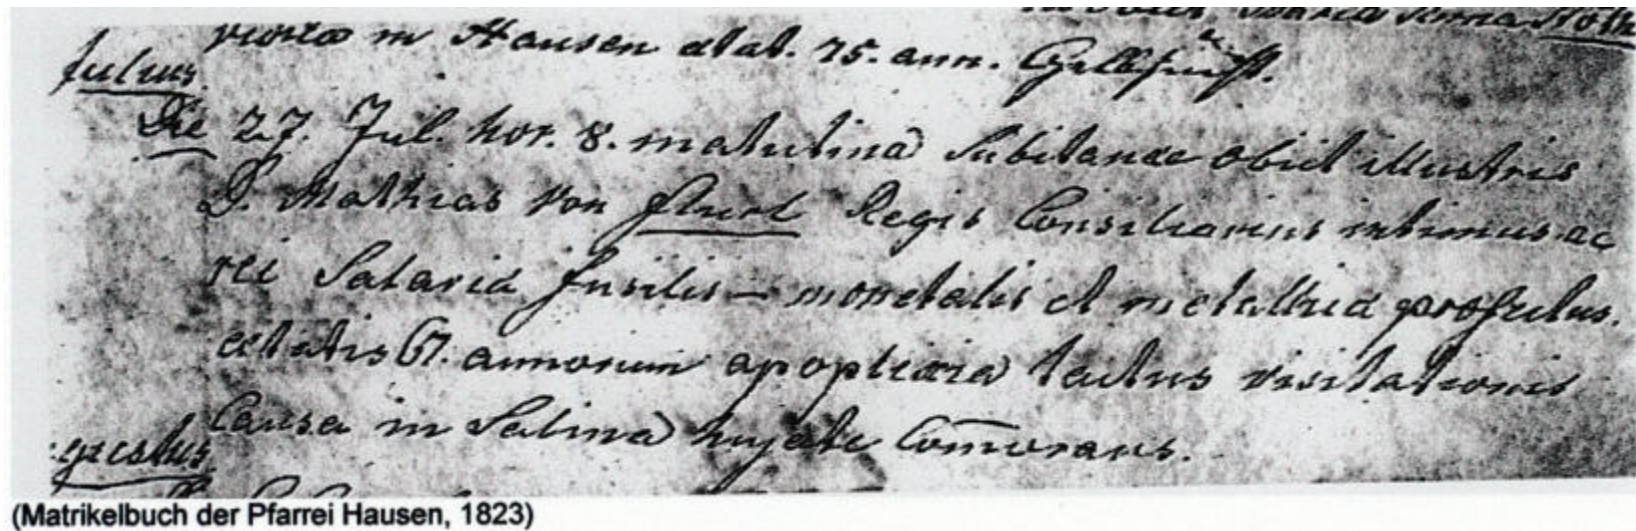 Maria Anna Roth
in Hausen etat. 75. ann.
Julius.
Die 27. Jul. hor. 8. matutina subitanee obiit illustris
D. Mathias von Flurl Regis Consiliarius intimus ac
rei Salaria fusilis – monetalis et metallica
aetatis 67. annorum apoplexia tactus visitationis
Causa in Salina hujate Com̄orans.
gustus
(Matrikelbuch der Pfarrei Hausen, 1823)